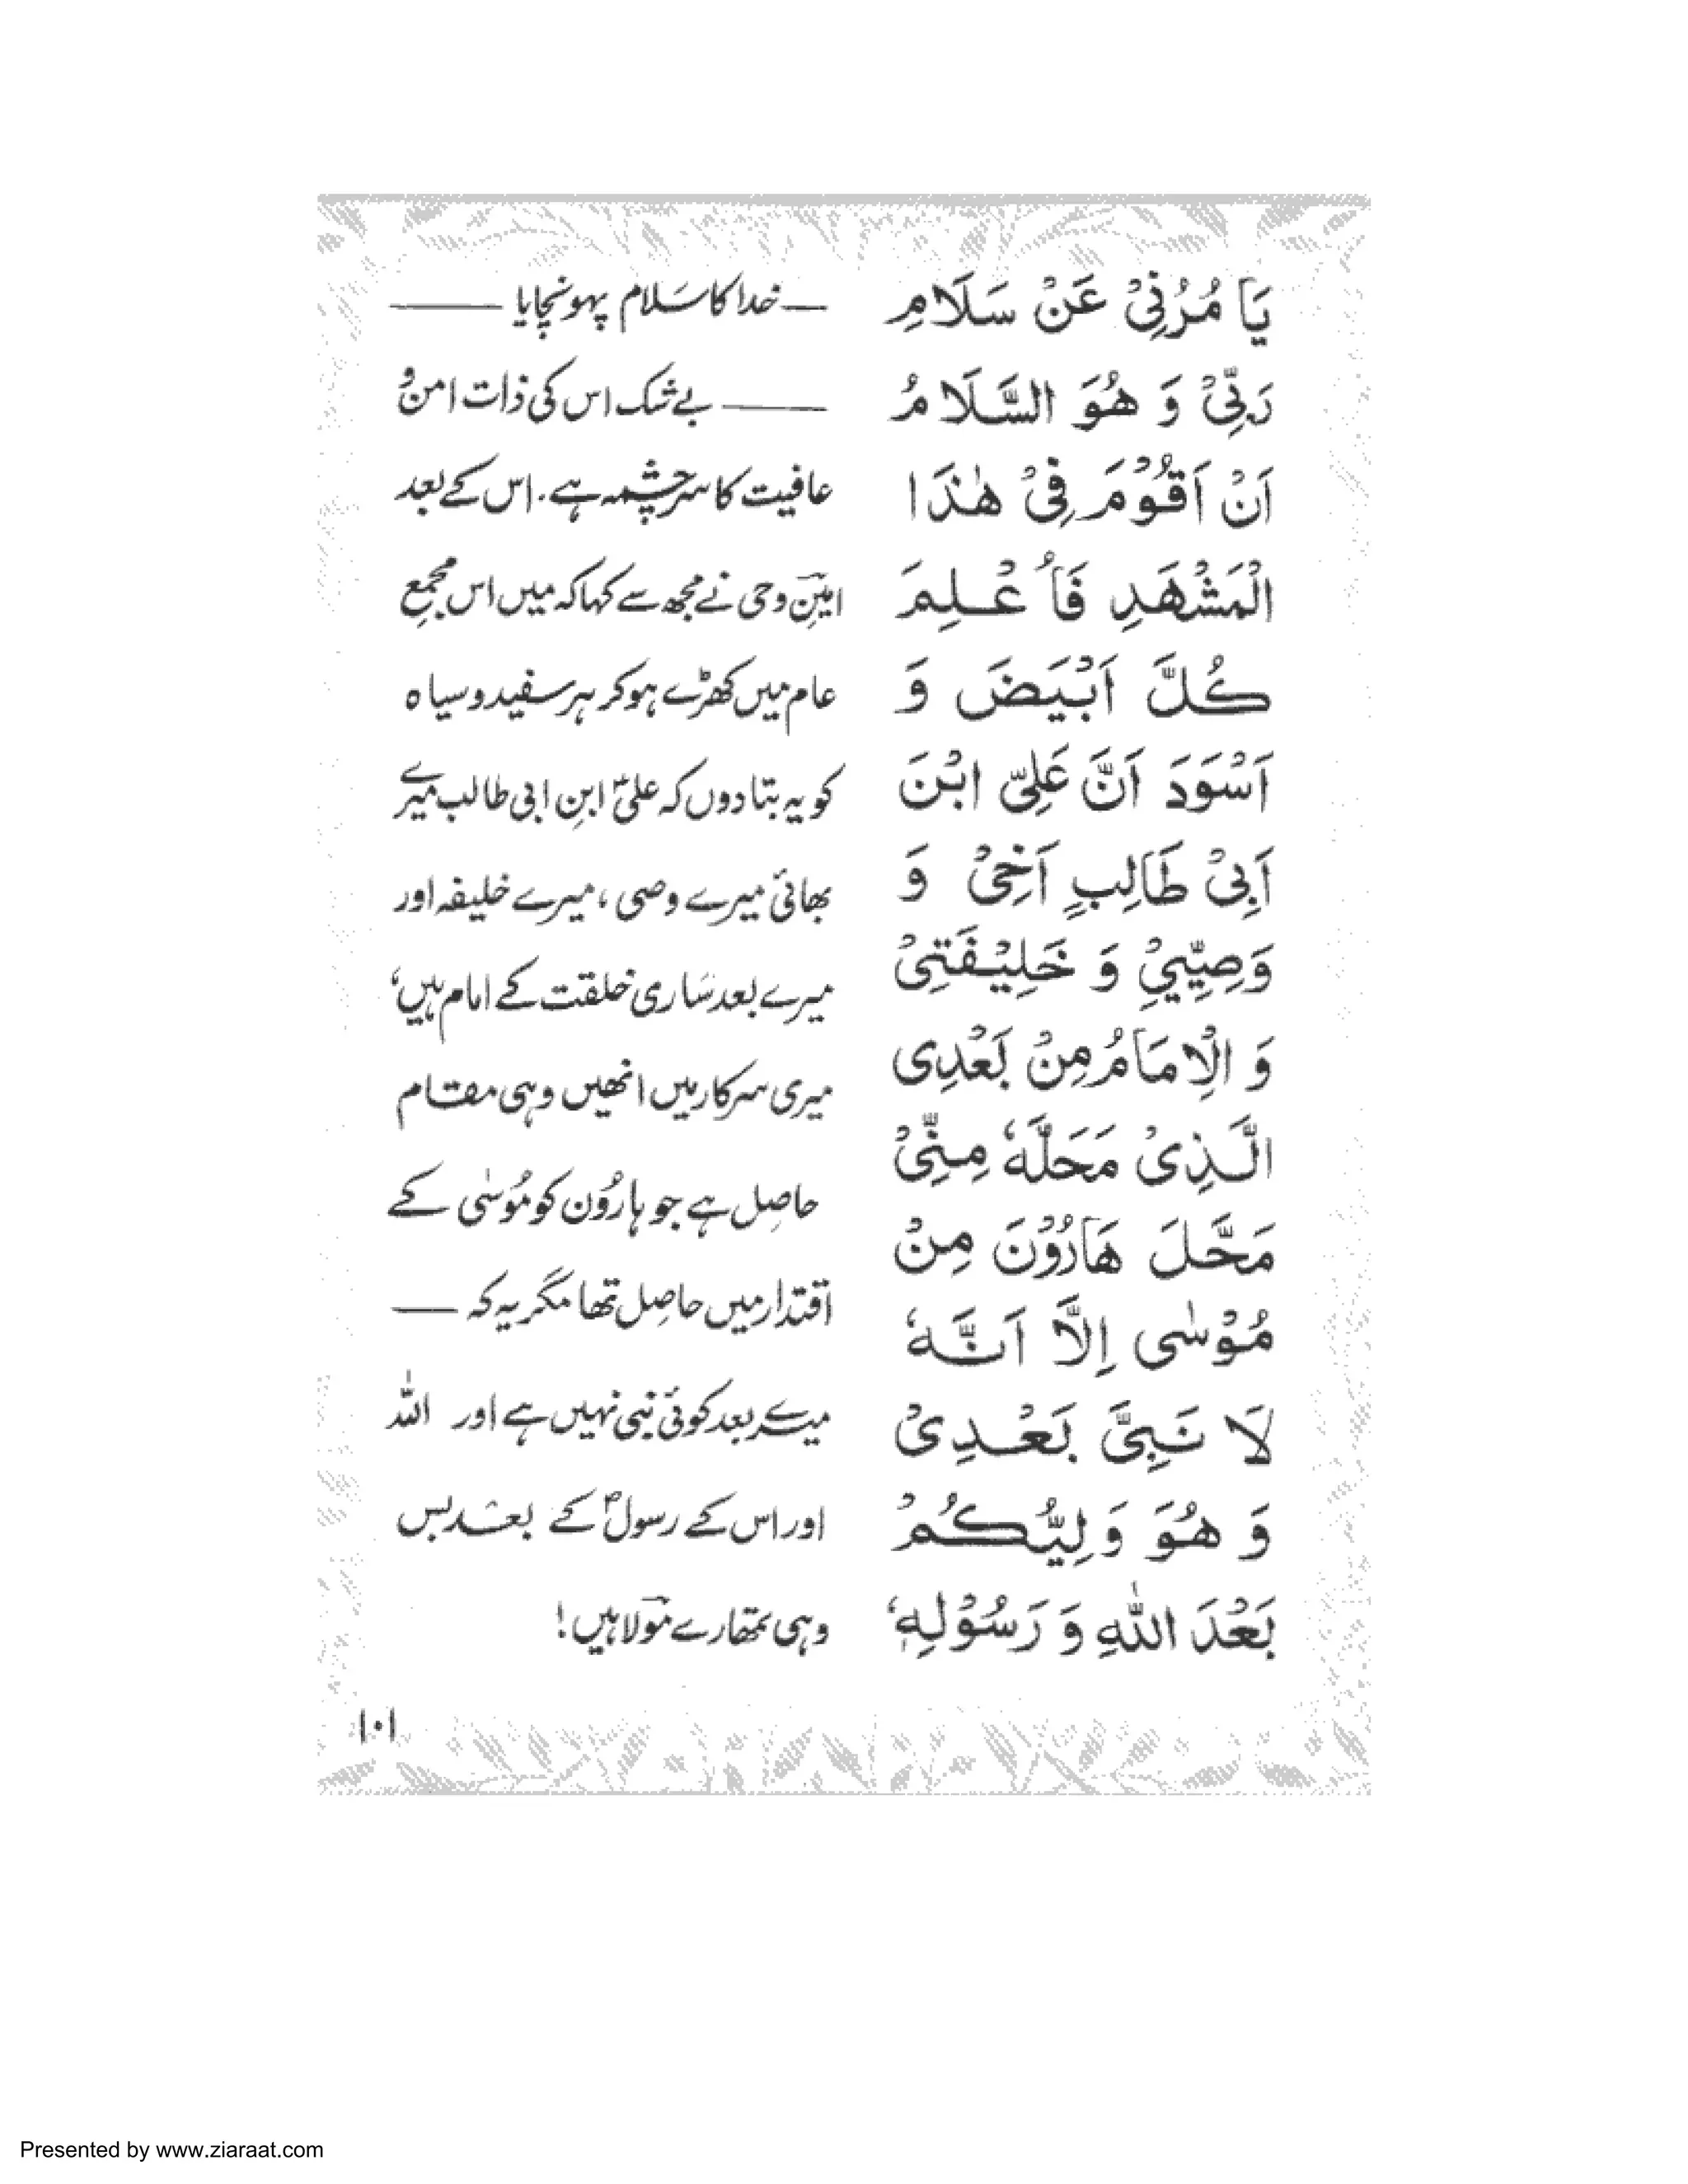 یَاْ مُرُنِیْ عَنْ سَلَامِ
رَبِّیْ وَ هُوَ السَّلَامُ
اَنْ اَقُوْمَ فِیْ هٰذَا
الْمَشْهَدِ فَاُعْلِمَ
كُلَّ اَبْیَضَ وَ
اَسْوَدَ اَنَّ عَلِیّ ابْنَ
اَبِیْ طَالِبٍ اَخِیْ وَ
وَصِیِّیِیْ وَ خَلِیْفَتِیْ
وَ الْاِمَامُ مِنْ بَعْدِی
الَّذِیْ مَحَلَّهٗ مِنِّیْ
مَحَّلَ هَارُوْنَ مِنْ
مُوْسٰی اِلَّا اَنَّهٗ
لَا نَبِیَّ بَعْدِیْ
وَ هُوَ وَلِیُّكُمْ
بَعْدَ اللّٰهِ وَ رَسُوْلِهٖ
— خدا کا سَلام پہونچایا —
— بے شک اس کی ذات امن و
عافیت کا سرچشمہ ہے۔ اس کے بعد
امینِ وحی نے مجھ سے کہا کہ میں اس مجمعِ
عام میں کھڑے ہو کر ہر سفید و سیاہ
کو یہ بتا دوں کہ علیؑ ابنِ ابی طالب میرے
بھائی میرے وصی ، میرے خلیفہ اور
میرے بعد سَاری خلقت کے امام ہیں،
میری سرکار میں انھیں وہی مقام
حاصِل ہے جو ہارُون کو مُوسٰی کے
اقتدار میں حاصِل تھا مگر یہ کہ —
میرے بعد کوئی نبی نہیں ہے اور اللہ
اور اس کے رسولؐ کے بعد بس
وہی تمھارے مَولا ہیں !
۱۰۱
Presented by www.ziaraat.com